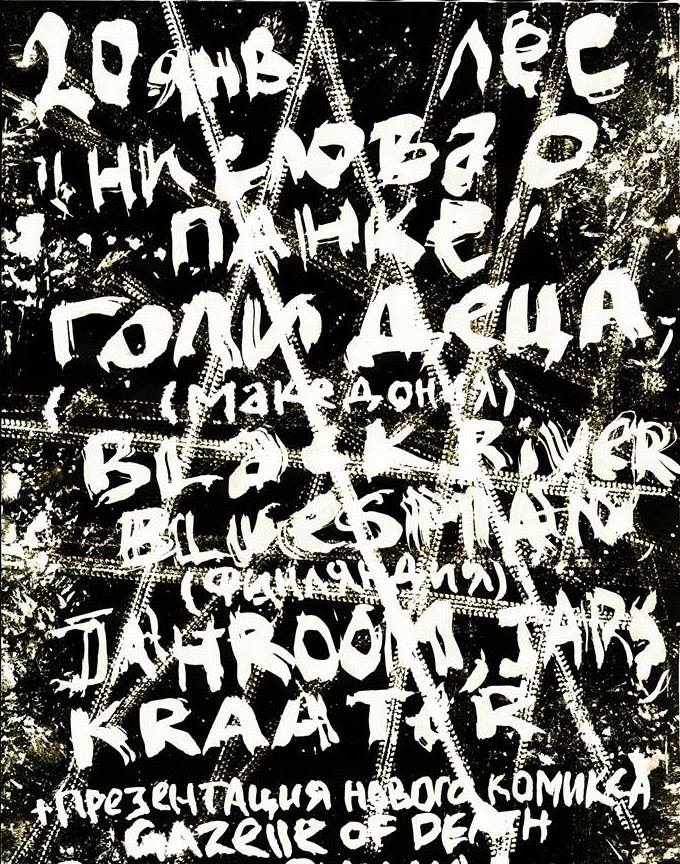 20 янв ЛЕС
"НИ СЛОВА О
ПАНКЕ"
ГОЛИ ДЕЦА,
(МАКЕДОНИЯ)
BLACK RIVER
BLUESMAN,
(ФИНЛЯНДИЯ)
JAHROOM, JARS
KRAHTER
+ ПРЕЗЕНТАЦИЯ НОВОГО КОМИКСА
GAZELLE OF DEATH